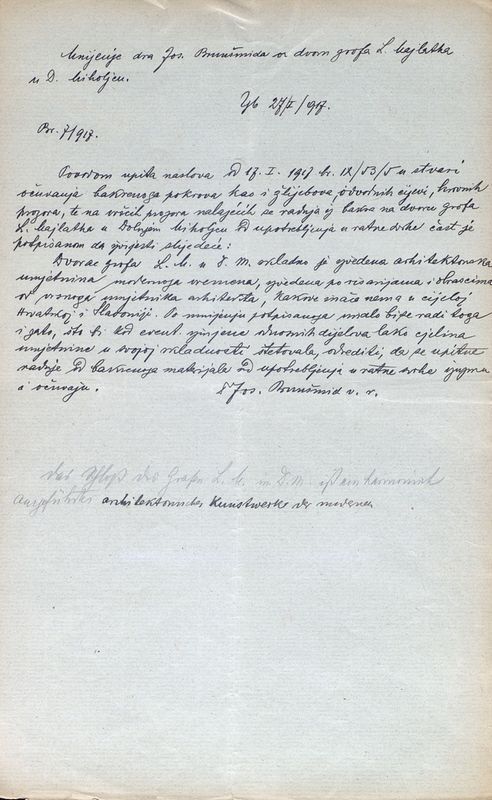 Mnijenje dra Jos. Brunšmida o dvoru grofa L. Majlatha
u D. Miholjcu.
Zgb 27/I/1917.
Br. 7/917.
Povodom upita naslova od 17. I. 1917 br. IX/53/5 u stvari
očuvanja bakrenoga pokrova kao i žlijebova, odvodnih cijevi, krovnih
prozora, te na vršcih prozora nalazećih se radnja iz bakra na dvoru grofa
L. Majlatha u Dolnjem Miholjcu od upotrebljenja u ratne svrhe čast je
potpisanom da izvijesti slijedeće:
Dvorac grofa L. M. u D. M. skladno je izvedena arhitektonska
umjetnina modernoga vremena, izvedena po risarijama i obrascima
od vrsnoga umjetnika arhitekta, kakve inače nema u cijeloj
Hrvatskoj i Slavoniji. Po mnijenju potpisanoga imalo bi se radi toga
i zato, što bi kod event. snimanja odnosnih dijelova lako cjelina
umjetnine u svojoj skladnosti štetovala, odrediti, da se upitne
radnje od bakrenoga materijala od upotrebljenja u ratne svrhe izuzmu
i očuvaju.
Dr Jos. Brunšmid v. r.
Das Schloß des Grafen L. M. in D. M. ist ein harmonisch
ausgeführtes architektonisches Kunstwerk der modernen